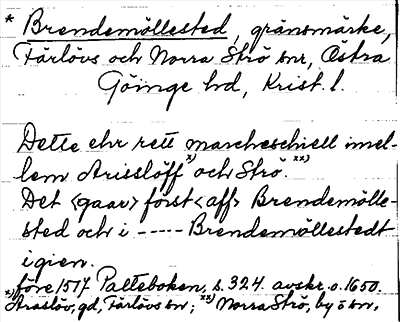 * Brendemöllested, gränsmärke,
Färlövs och Norra Strö snr, Östra
Göinge hd, Krist. l.
Dette ehr rett marcheschiell imel-
lem Arisslöff x) och Strö. xx)
Det <gaar> först <aff> Brendemölle-
sted och i ----- Brendemöllestedt
igien.
före 1517 Palteboken, s. 324. avskr. o. 1650.
x) Araslöv, gd, Färlövs sn; xx) Norra Strö, by o sn.